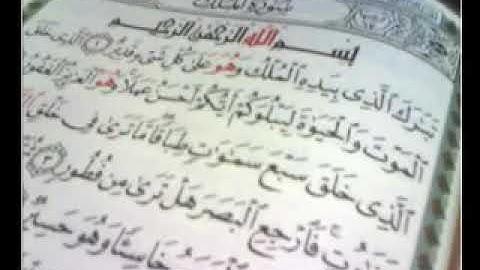 سُورَةُ الْمُلْكِ
بِسْمِ اللّٰهِ الرَّحْمٰنِ الرَّحِيمِ
تَبٰرَكَ الَّذِى بِيَدِهِ الْمُلْكُ وَهُوَ عَلٰى كُلِّ شَىْءٍ قَدِيرٌ ١ الَّذِى خَلَقَ
الْمَوْتَ وَالْحَيٰوةَ لِيَبْلُوَكُمْ اَيُّكُمْ اَحْسَنُ عَمَلًا وَهُوَ الْعَزِيزُ الْغَفُورُ
الَّذِى خَلَقَ سَبْعَ سَمٰوٰتٍ طِبَاقًا مَا تَرٰى فِى خَلْقِ
تَفٰوُتٍ فَارْجِعِ الْبَصَرَ هَلْ تَرٰى مِنْ فُطُورٍ ٣
خَاسِئًا وَهُوَ حَسِيرٌ